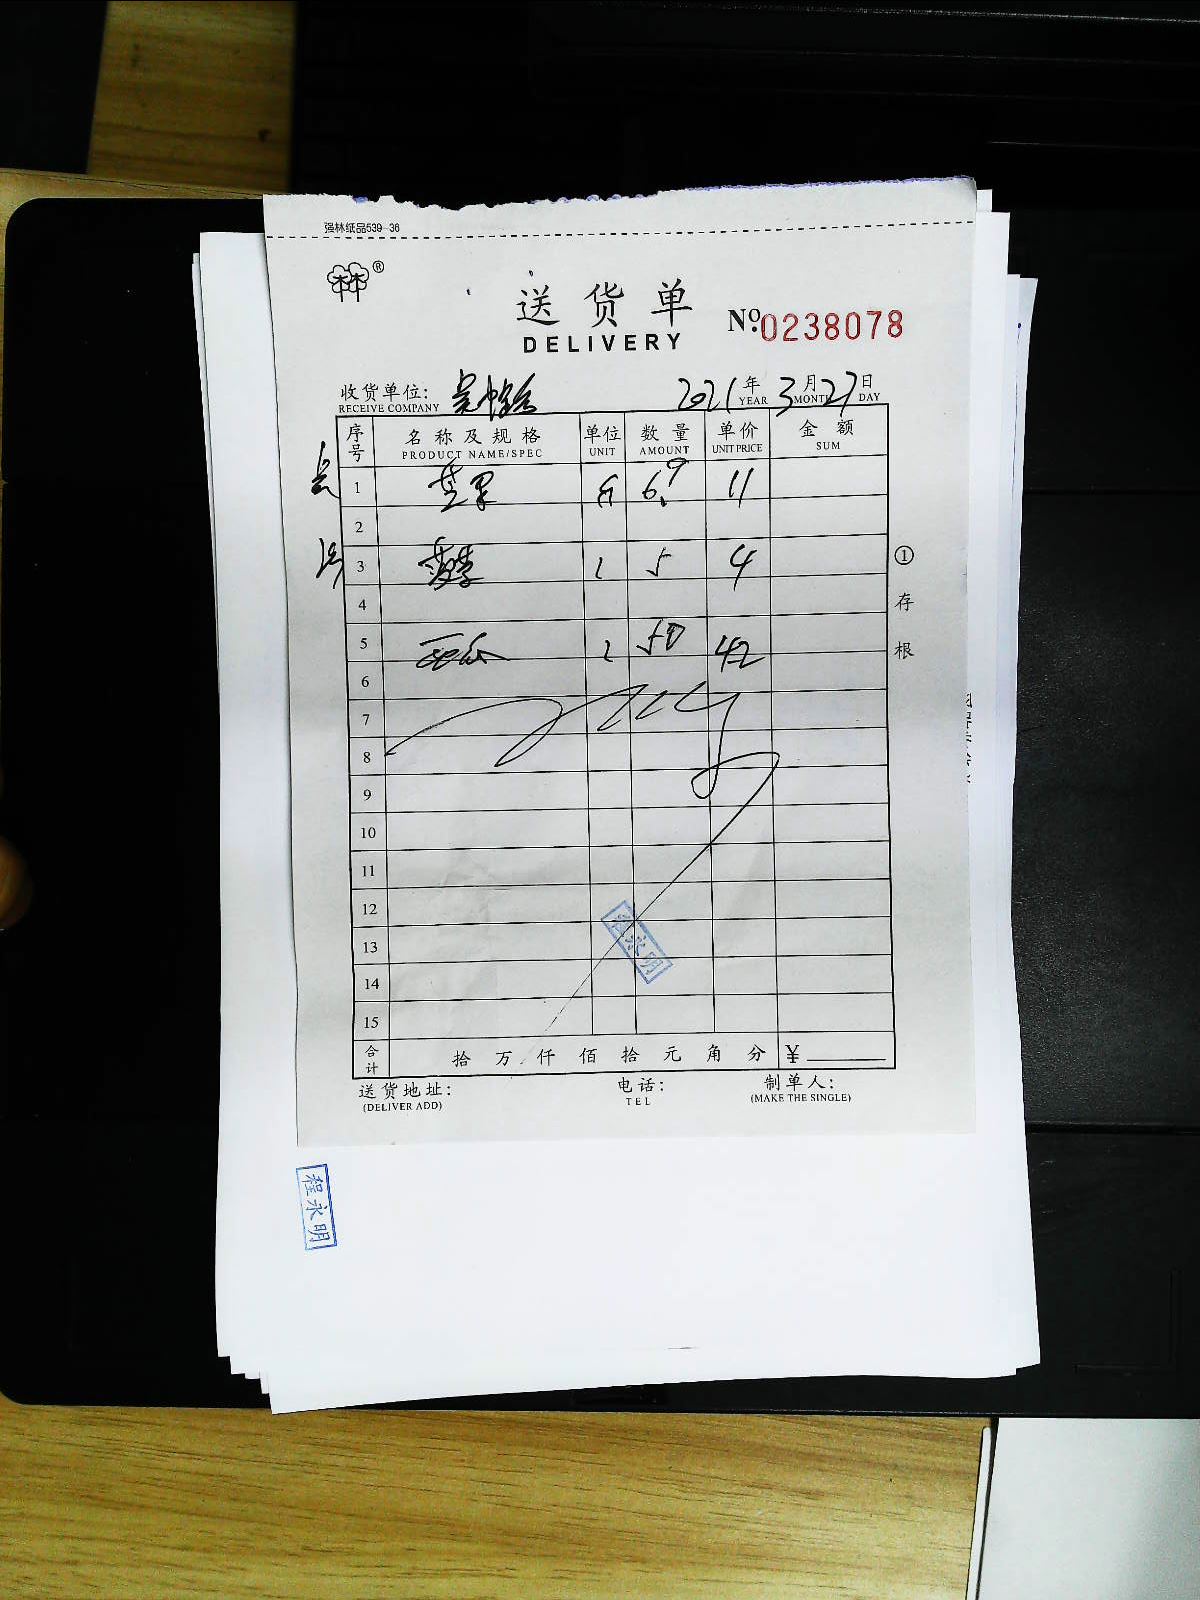 强林纸品539-36
®
送货单
DELIVERY
№:0238078
收货单位: 2021年3月27日
RECEIVE COMPANY YEAR MONTH DAY
序号 名称及规格 单位 数量 单价 金额
PRODUCT NAME/SPEC UNIT AMOUNT UNIT PRICE SUM
1 苹果 斤 6.9 11
2
3 雪梨 5 4
4
5 西瓜 50 42
6
7
8
9
10
11
12
13
14
15
①存根
程永明
合计 拾 万 仟 佰 拾 元 角 分 ¥
送货地址: 电话: 制单人:
(DELIVER ADD) TEL (MAKE THE SINGLE)
程永明